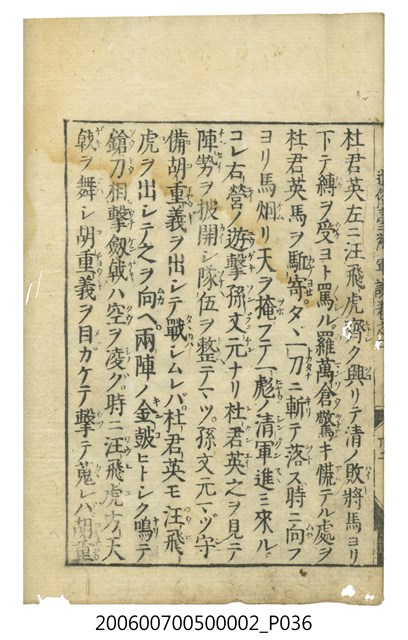 杜君英左ニ汪飛虎齊ク興リテ清ノ敗將馬ヨリ
下テ縛ヲ受ヨト罵ル。羅萬倉驚キ慌テル處ヲ
杜君英馬ヲ駈寄タヾ一刀ニ斬テ落ス時ニ向フ
ヨリ馬烟リ天ヲ掩フテ一彪ノ清軍進ミ來ル。
コレ右營ノ遊撃孫文元ナリ杜君英之ヲ見テ
陣勢ヲ披開シ隊伍ヲ整テマツ。孫文元マヅ守
備胡重義ヲ出シテ戰シムレバ。杜君英モ汪飛
虎ヲ出シテ之ヲ向ヘ。兩陣ノ金皷ヒトシク鳴テ
鎗刀相擊劔戟ハ空ヲ凌グ。時ニ汪飛虎方天
戟ヲ舞シ胡重義ヲ目ガケテ擊テ蒐レハ胡重
200600700500002_P036